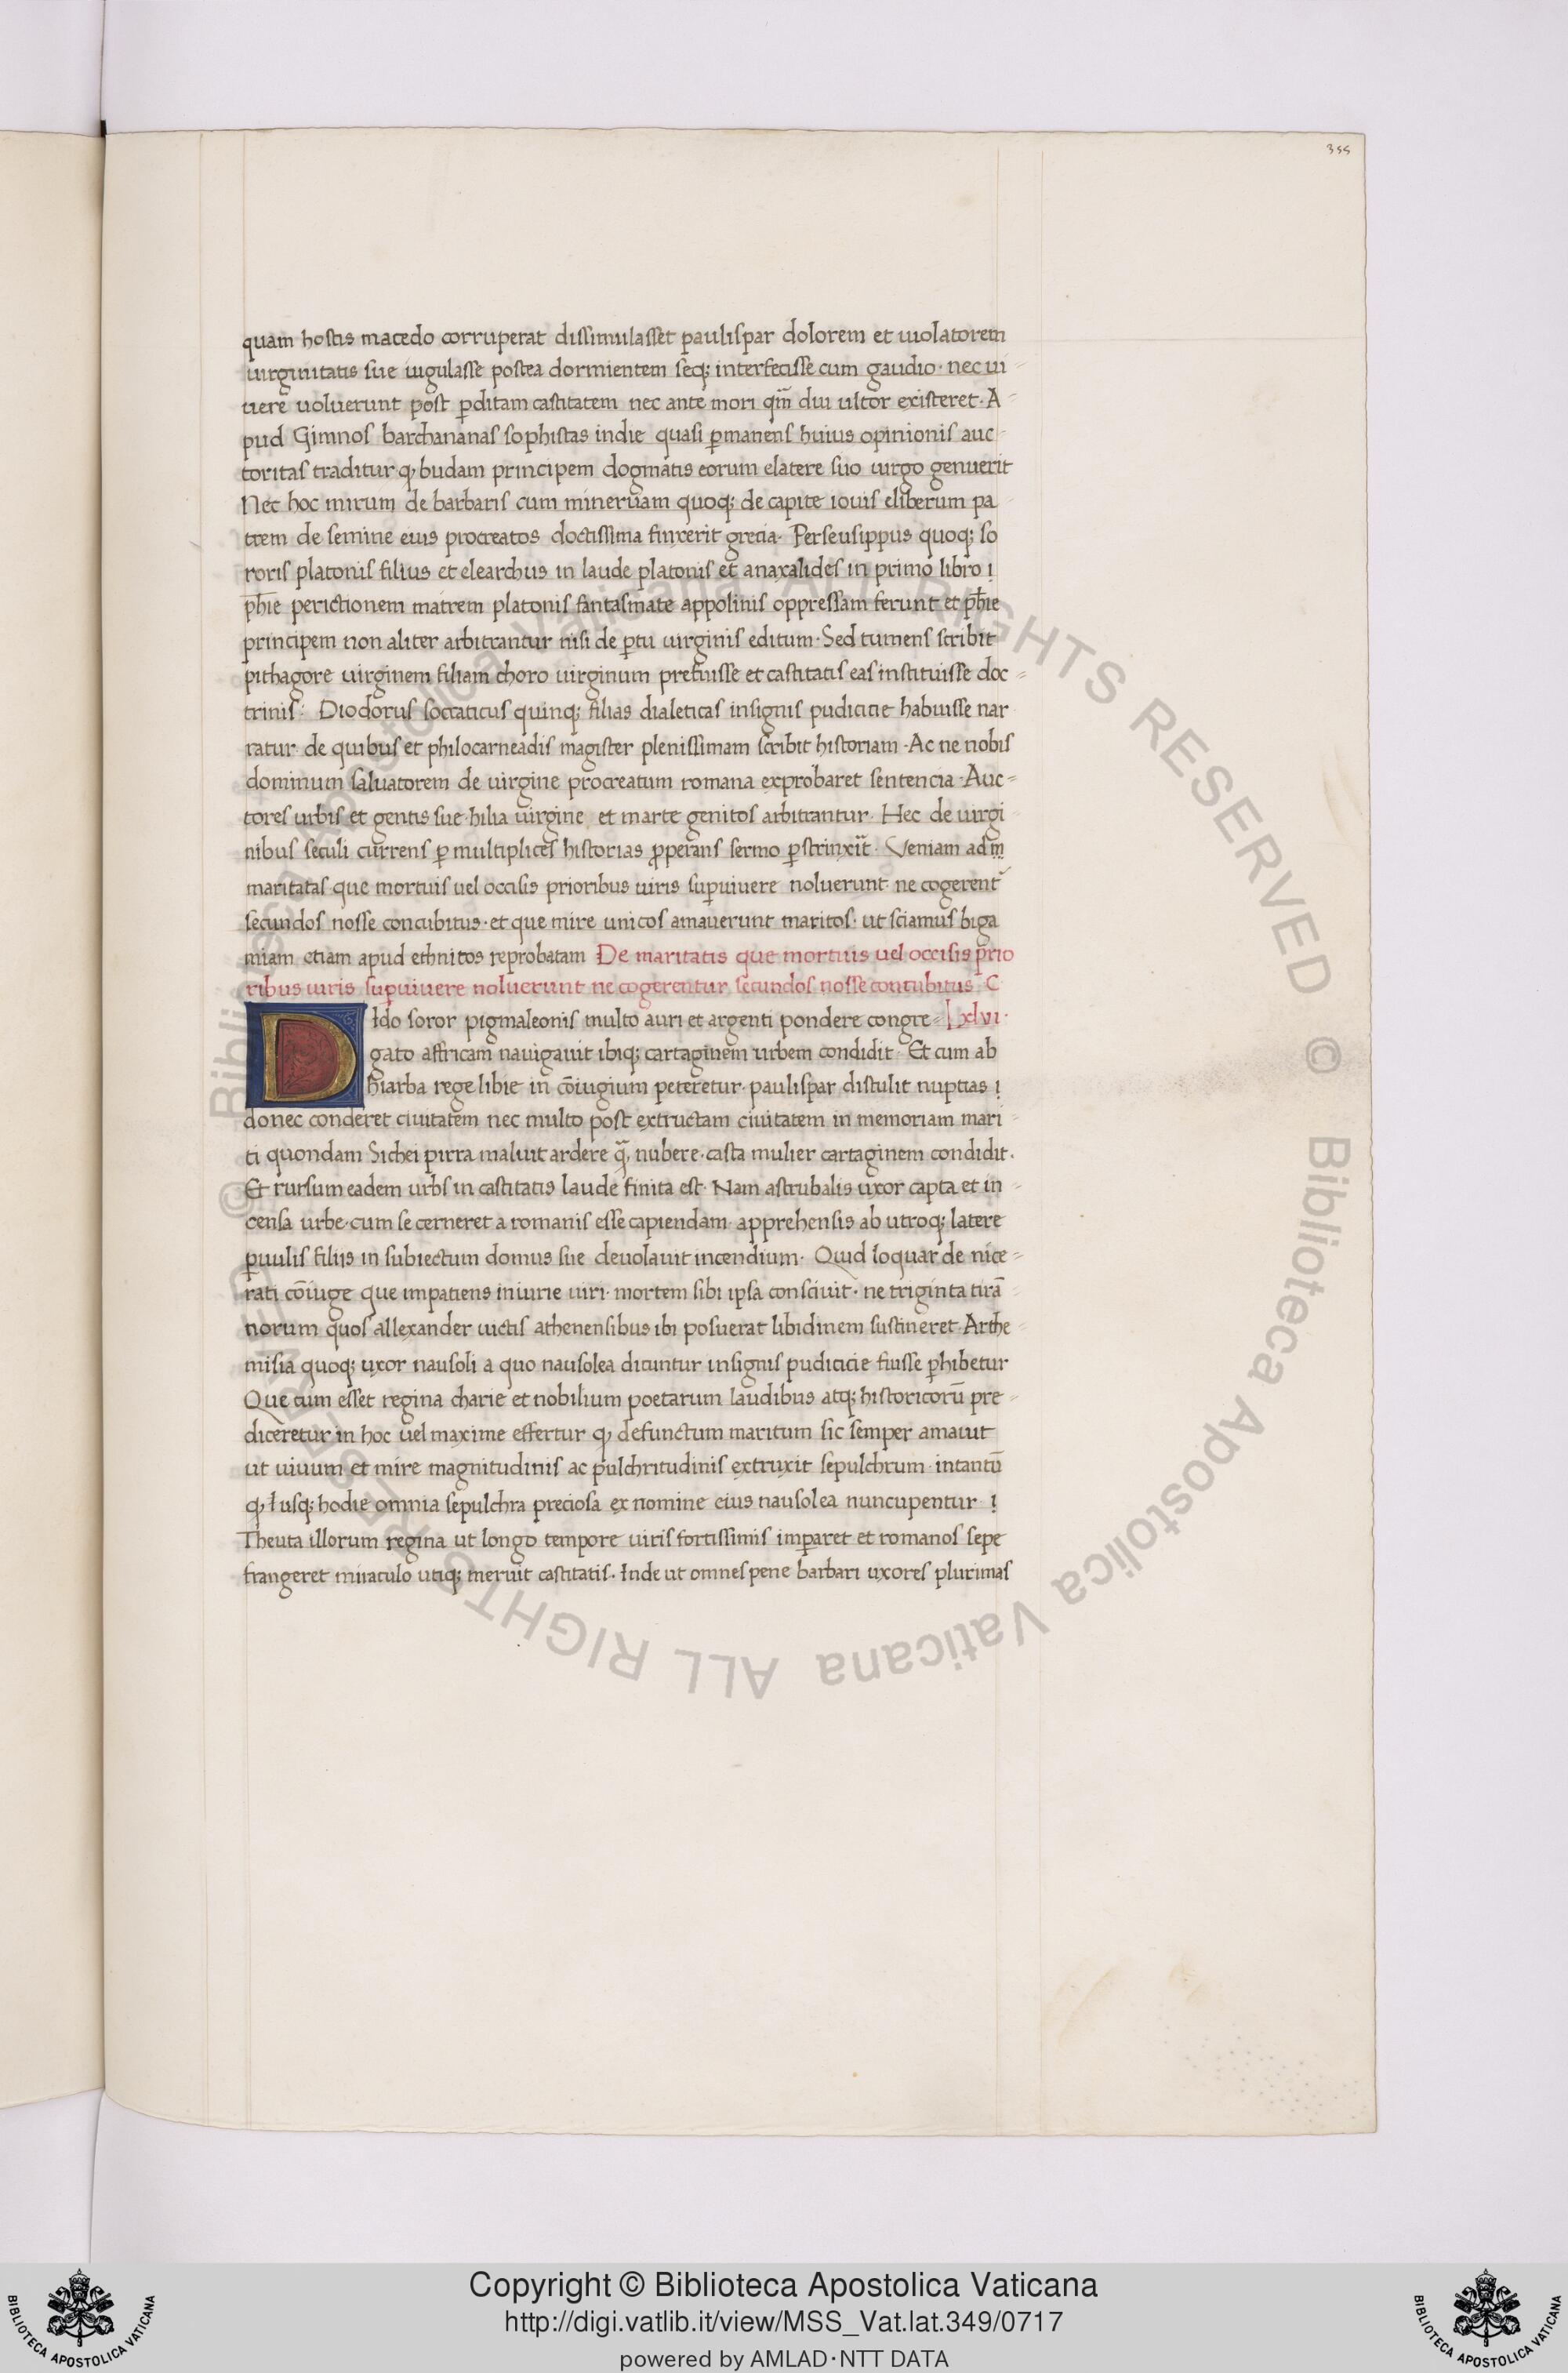 355
quam hostis macedo corruperat dissimulasset paulispar dolorem et uiolatorem
uirginitatis sue iugulasse postea dormientem seq; interfecisse cum gaudio · nec ui
uere uoluerunt post p̱ditam castitatem nec ante mori qm̄ diu ultor existeret · A
pud Gimnos barchananas sophistas indie quasi p̱manens huius opinionis auc
toritas traditur q̨ budam principem dogmatis eorum elatere suo uirgo genuerit
Nec hoc mirum de barbaris cum mineruam quoq; de capite iouis eliberum pa
trem de semine eius procreatos doctissima finxerit grecia · Perseusippus quoq; so
roris platonis filius et elearchus in laude platonis et anaxalides in primo libro
ph̄ie perictionem matrem platonis fantasmate appolinis oppressam ferunt et ph̄ie
principem non aliter arbitrantur nisi de p̱tu uirginis editum · Sed tumens scribit
pithagore uirginem filiam choro uirginum prefuisse et castitatis eas instituisse doc
trinis · Diodorus socraticus quinq; filias dialeticas insignis pudicicie habuisse nar
ratur de quibus et philocarneadis magister plenissimam scribit historiam · Ac ne nobis
dominum saluatorem de uirgine procreatum romana exprobaret sentencia · Auc
tores urbis et gentis sue hilia uirgine et marte genitos arbitrantur · Hec de uirgi
nibus seculi currens p̱ multiplices historias p̱perans sermo p̱strinxit · Veniam ad
maritatas que mortuis uel occisis prioribus uiris sup̱uiuere noluerunt ne cogerent᷑
secundos nosse concubitus · et que mire unicos amauerunt maritos · ut sciamus biga
miam etiam apud ethnicos reprobatam De maritatis que mortuis uel occisis prio
ribus uiris sup̱uiuere noluerunt ne cogerentur secundos nosse concubitus · C
Dido soror pigmaleonis multo auri et argenti pondere congre xlvi ·
gato affricam nauigauit ibiq; cartaginem urbem condidit · Et cum ab
hiarba rege libie in cōiugium peteretur · paulispar distulit nuptias
donec conderet ciuitatem nec multo post extructam ciuitatem in memoriam mari
ti quondam Sichei pirra maluit ardere q̄ nubere · casta mulier cartaginem condidit ·
Et rursum eadem urbs in castitatis laude finita est · Nam astrubalis uxor capta et in
censa urbe · cum se cerneret a romanis esse capiendam · apprehensis ab utroq; latere
p̱uulis filijs in subiectum domus sue deuolauit incendium · Quid loquar de nice
rati cōiuge que impatiens iniurie uiri · mortem sibi ipsa consciuit · ne triginta tirā
norum quos allexander uictis athenensibus ibi posuerat libidinem sustineret · Arthe
misia quoq; uxor nausoli a quo nausolea dicuntur insignis pudicicie fuisse p̱hibetur
Que cum esset regina charie et nobilium poetarum laudibus atq; historicorū pre
diceretur in hoc uel maxime effertur q̨ defunctum maritum sic semper amauit
ut uiuum et mire magnitudinis ac pulchritudinis extruxit sepulchrum · intantū
q̨ usq; hodie omnia sepulchra preciosa ex nomine eius nausolea nuncupentur
Theuta illorum regina ut longo tempore uiris fortissimis imp̱aret et romanos sepe
frangeret miraculo utiq; meruit castitatis · Inde ut omnes pene barbari uxores plurimas
© Biblioteca Apostolica Vaticana ALL RIGHTS RESERVED © Biblioteca Apostolica Vaticana ALL RIGHTS RESERVED
Copyright © Biblioteca Apostolica Vaticana
http://digi.vatlib.it/view/MSS_Vat.lat.349/0717
powered by AMLAD·NTT DATA
BIBLIOTECA APOSTOLICA VATICANA
BIBLIOTECA APOSTOLICA VATICANA